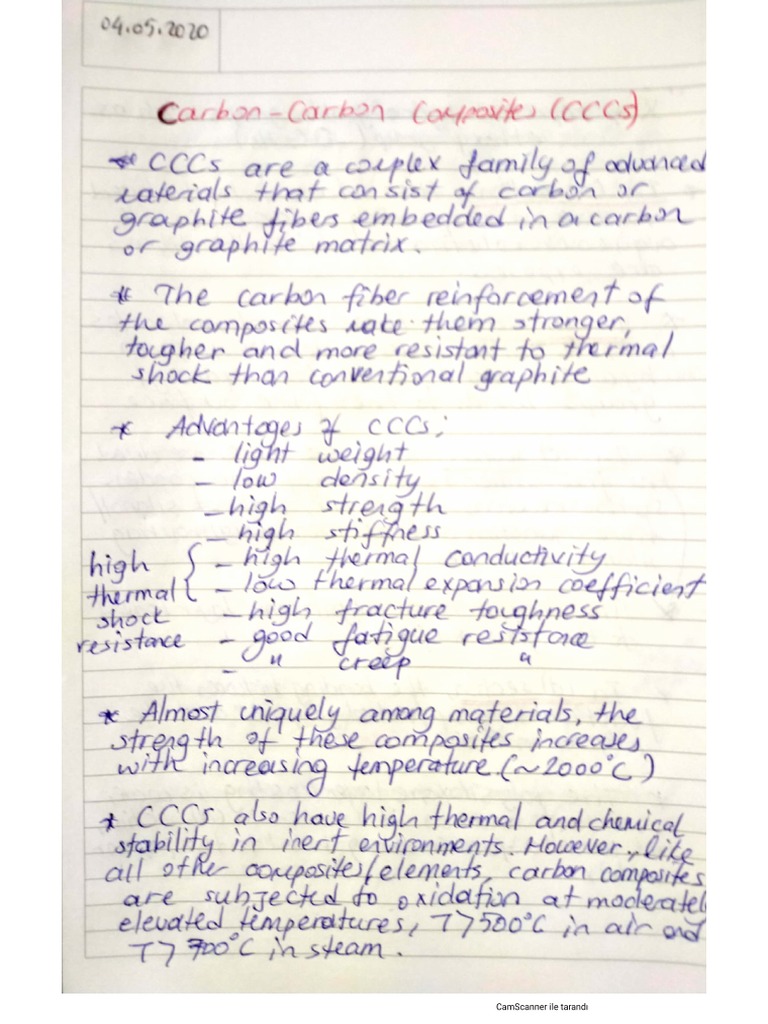 04.05.2020
Carbon-Carbon Composites (CCCs)
* CCCs are a complex family of advanced
materials that consist of carbon or
graphite fibers embedded in a carbon
or graphite matrix.
* The carbon fiber reinforcement of
the composites make them stronger,
tougher and more resistant to thermal
shock than conventional graphite
* Advantages of CCCs;
- light weight
- low density
- high strength
- high stiffness
- high thermal conductivity
- low thermal expansion coefficient
high thermal shock resistance
- high fracture toughness
- good fatigue resistance
- " creep "
* Almost uniquely among materials, the
strength of these composites increases
with increasing temperature (~2000°C)
* CCCs also have high thermal and chemical
stability in inert environments. However, like
all other composites/elements, carbon composites
are subjected to oxidation at moderatel
elevated temperatures, T>500°C in air and
T>700°C in steam.
CamScanner ile tarandı